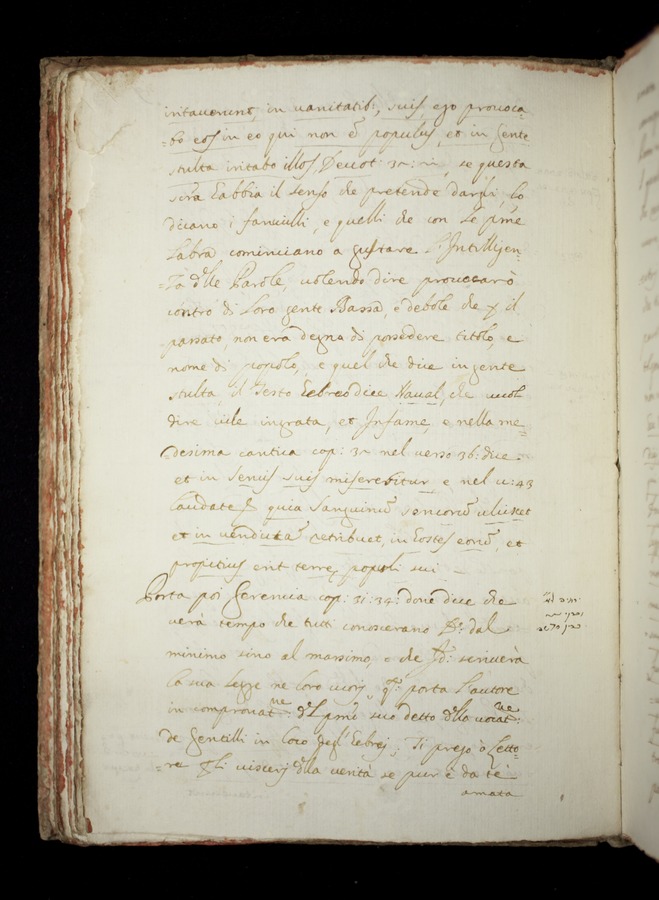 ritaverunt, in vanitatib:, suis ego provoca=
=bo eos in eo qui non ē populus, et in gente
stulta iritabo illos, Deuot: 32: se questa
habbia il senso che pretende darsili, lo
dicano i fanciulli, e quelli che con le pme
Labra, cominciano a gustare l'Intelligen=
=za dlle Parole, volendo dire provocarò
contro di loro gente Bassa, e debole che p il
passato non era degna di possedere titolo, e
nome di popolo, e quel che dice in gente
stulta il Testo Eebreo dice Naual, che vuol
dire vile ingrata, et Infame, e nella me=
desima cantica cap: 32 nel verso 36: dice.
et in servis suis miserebitur e nel v: 43
Laudate quia Sanguinū servorū ulciscet
et in vendictā retribuet, in hostes eorū, et
propitius erit terre populi sui
Porta poi Geremia cap: 31: 34: doue dice che
verà tempo che tuti conoscerano D: dal
minimo sino al massimo, e che Id: scriverà
la sua legge ne loro cuori, porta l'autore
in comprovatne: del pmo suo detto dlla vocatne:
de Gentilli in loco degl'Eebrej; Ti prego ò Letto=
re p li viscerj dlla verità se pur è da té
amata